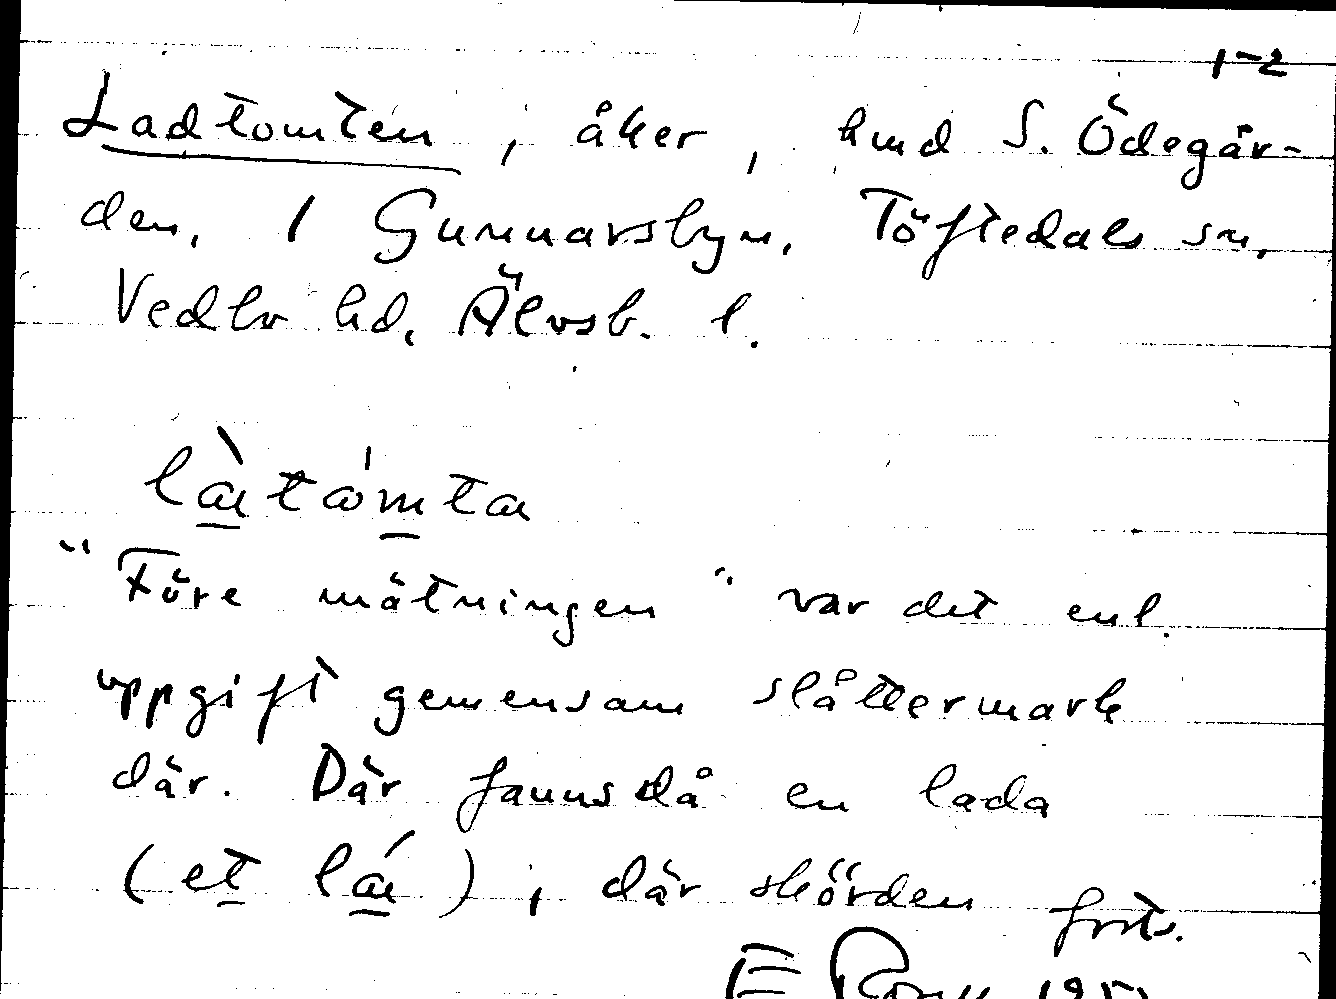 1-2
Ladtomten, åker, hmd S. Ödegår-
den, 1 Gunnarsbyn, Töftedals sn,
Vedbo hd, Älvsb. l.
là̱tám̱ta
"Före mätningen" var det enl.
uppgift gemensam slåttermark
där. Där fanns då en lada
(et̲ lá̱), där skörden forts.
E